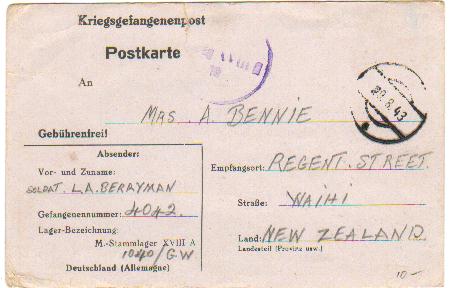 Kriegsgefangenenpost
Postkarte
XVIII
An
MRS A. BENNIE
29.8.43
Gebührenfrei!
Absender:
Vor- und Zuname:
SOLDAT. L.A. BERRYMAN
Gefangenennummer: 4042.
Lager-Bezeichnung:
M.-Stammlager XVIII A
1040/G.W
Deutschland (Allemagne)
Empfangsort: REGENT. STREET.
Straße: WAIHI
Land: NEW ZEALAND.
Landesteil (Provinz usw.)
10-